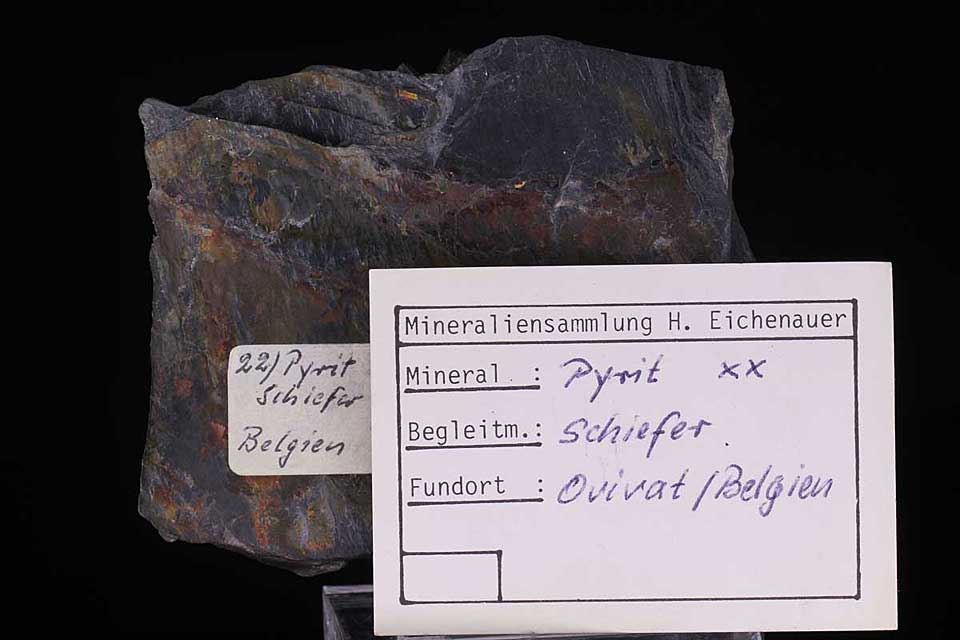 22) Pyrit
Schiefer
Belgien
Mineraliensammlung H. Eichenauer
Mineral : Pyrit xx
Begleitm.: Schiefer
Fundort : Ovivat / Belgien